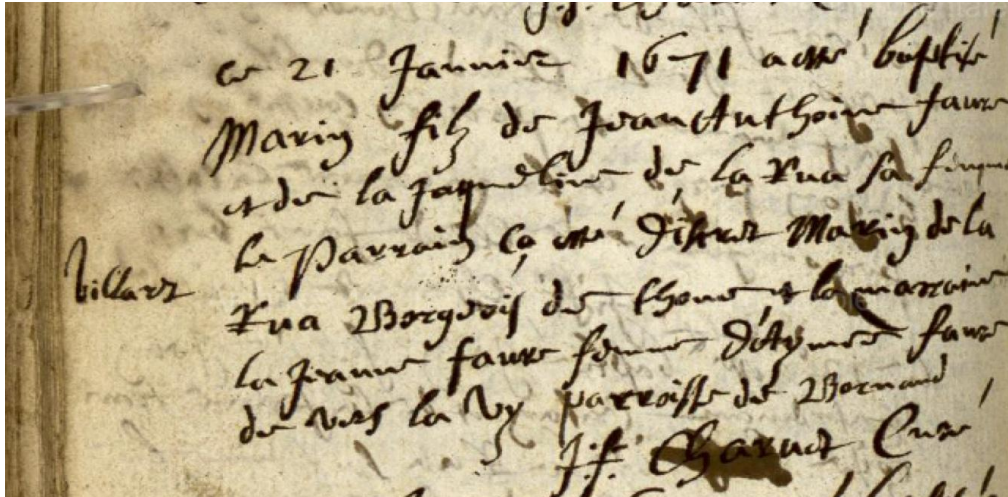 ce 21 Januier 1671 a esté baptisé
Marin filz de Jean Anthoine faure
et de la Jaqueline de la Rua sa femme
Villarz
le Parrain ça esté discret Marin de la
Rua Borgeois de thone et la marraine
la Jeanne faure femme d'Aymee faure
de vers la Vy parroisse de Bornand
J.f. Curé